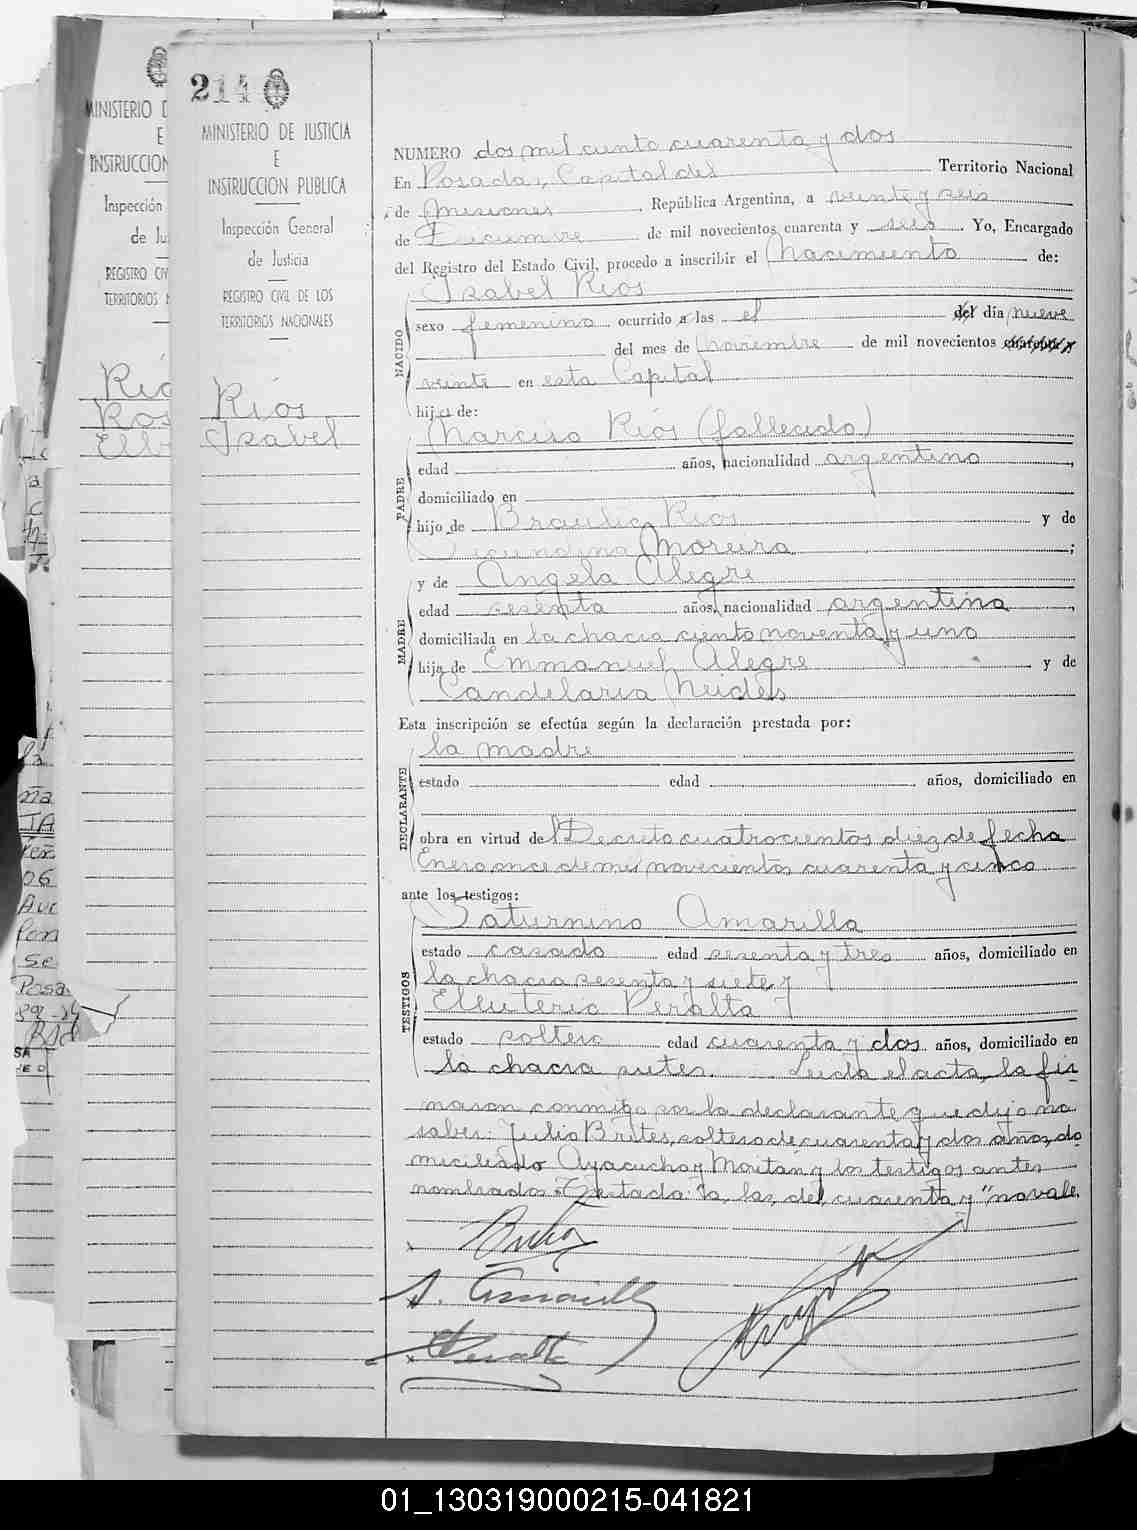 214
MINISTERIO DE JUSTICIA
E
INSTRUCCION PUBLICA
Inspección General
de Justicia
REGISTRO CIVIL DE LOS
TERRITORIOS NACIONALES
Ríos
Isabel
NUMERO dos mil ciento cuarenta y dos
En Posadas, Capital del Territorio Nacional
de Misiones, República Argentina, a veinte y seis
de Diciembre de mil novecientos cuarenta y seis. Yo, Encargado
del Registro del Estado Civil, procedo a inscribir el Nacimiento de:
Isabel Ríos
NACIDO
sexo femenino ocurrido a las el del día nueve
del mes de Noviembre de mil novecientos
veinte en esta Capital
hija de:
Narciso Ríos (fallecido)
PADRE
edad años, nacionalidad argentino,
domiciliado en
hijo de Braulio Ríos y de
Secundina Moreira;
y de Angela Alegre
MADRE
edad sesenta años, nacionalidad argentina,
domiciliada en la chacra ciento noventa y uno
hija de Emmanuel Alegre y de
Candelaria
Esta inscripción se efectúa según la declaración prestada por:
la madre
DECLARANTE
estado edad años, domiciliado en
obra en virtud del Decreto cuatrocientos diez de fecha
Enero once de mil novecientos cuarenta y cinco
ante los testigos:
Saturnino Amarilla
TESTIGOS
estado casado edad sesenta y tres años, domiciliado en
la chacra sesenta y siete y
Eleuterio Peralta
estado soltero edad cuarenta y dos años, domiciliado en
la chacra siete. Leida el acta, la fir
maron conmigo por la declarante que dijo no
saber: Julio Brites, soltero de cuarenta y dos años, do
miciliado Ayacucho y y los testigos antes
nombrados. Testado: "a, las, del, cuarenta y" no vale.
S. Amarilla
Peralta
MINISTERIO D
E
INSTRUCCION
Inspección
de Ju
REGISTRO CIV
TERRITORIOS N
Río
Ros
01_130319000215-041821